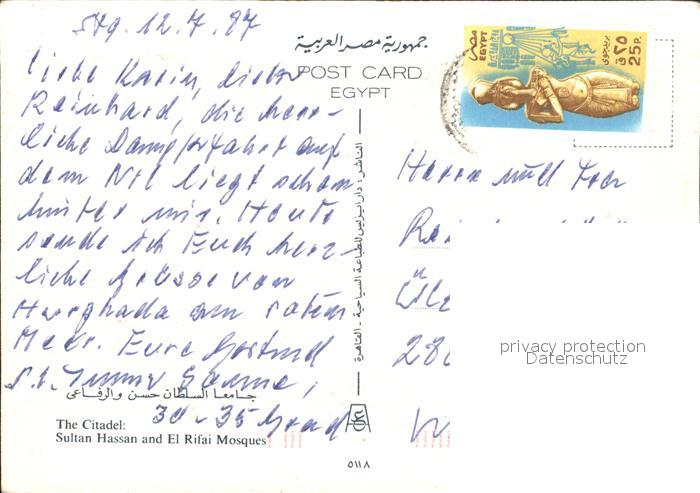 Stg. 12.7.87
liebe Karin, lieber
Reinhard, die herr-
liche Dampferfahrt auf
dem Nil liegt schon
hinter mir. Heute
sende ich Euch herz-
liche Grüsse von
Hurghada am roten
Meer. Eure Gertrud
P.S. Immer Sonne,
30-35 Grad
جامعا السلطان حسن والرفاعى
The Citadel:
Sultan Hassan and El Rifai Mosques
جمهورية مصر العربية
POST CARD
EGYPT
الناشر: دار ايزيس للطباعة السياحية - القاهرة
٥١١٨
مصر
EGYPT
بريد جوى
٢٥ ق
25 P.
Herrn und Frau
28
privacy protection
Datenschutz